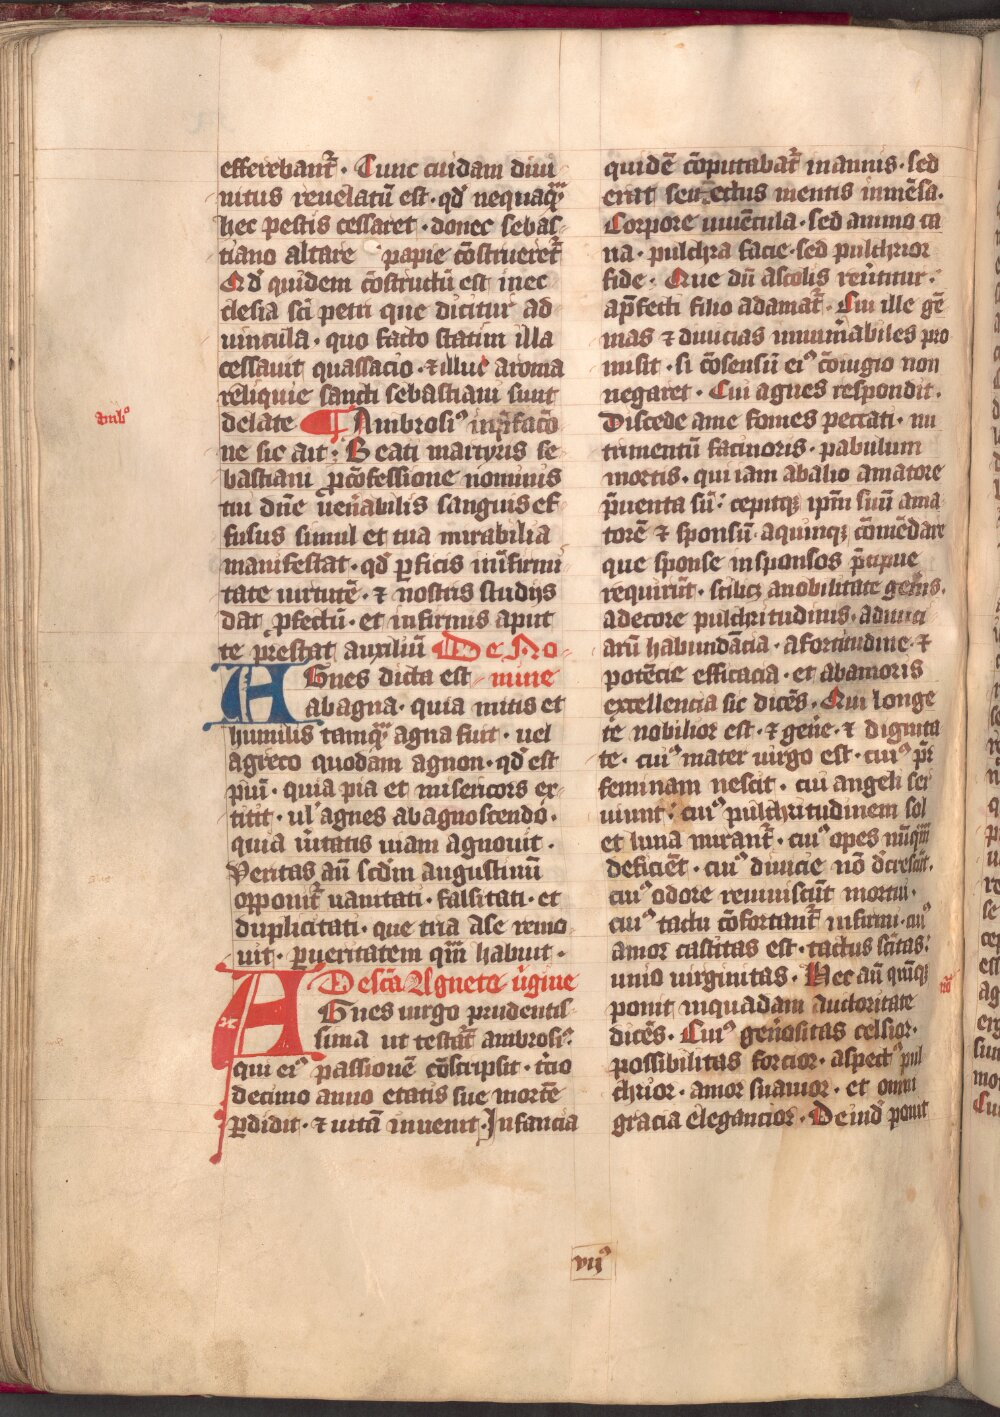 efferebant᷑ · Tunc cuidam diui
nitus reuelatū est · qd̕ nequaqᷓ
hec pestis cessaret · donec sebas
tiano altare papie ꝯ̄strueret᷑
Qd̕ quidem cōstructū est in ec
clesia sc̄i petri que dicitur ad
uincula · quo facto statim illa
cessauit quassacio · ⁊ illuc aroma
reliquie sancti sebastiani sunt
delate ¶ Ambrosiꝰ in p̄facō
ne sic ait · Beati martyris se
bastiani ꝓ cōfessione nominis
tui dn̄e uen̄abilis sanguis ef
fusus simul et tua mirabilia
manifestat · qd̕ ꝑficis in īfirmi
tate uirtutē · ⁊ nostris studijs
dat ꝓfectū · et infirmis aput
te prestat auxiliū De No
mine
Agnes dicta est
ab agna · quia mitis et
humilis tamqᷓ agna fuit · uel
a greco quodam agnon · qd̕ est
piū · quia pia et misericors ex
titit · ul̕ agnes ab agnoscendo ·
quia ūitatis uiam agnouit ·
Veritas aū scdm augustinū
opponit᷑ uanitati · falsitati · et
duplicitati · que tria a se remo
uit · ꝑ ueritatem qm̄ habuit ·
De sc̄a Agnete ūgine
Agnes uirgo prudentis
sima ut testat᷑ ambrosiꝰ
qui eiꝰ passionē cōscripsit · t̄cio
decimo anno etatis sue mortē
ꝑdidit · ⁊ uitā inuenit · Infancia
ambꝰ
quidē cōputabat᷑ in annis · sed
erat senectus mentis inmēsa ·
Corpore iuuēcula · sed animo ca
na · pulchra facie · sed pulchrior
fide · Que dū a scolis reūtitur ·
a p̄fecti filio adamat᷑ · Cui ille gē
mas ⁊ diuicias innum̄abiles pro
misit · si cōsensū eiꝰ cōiugio non
negaret · Cui agnes respondit ·
Discede a me fomes peccati · nu
trimentū facinoris · pabulum
mortis · qui iam ab alio amatore
p̄uenta sū · cepitqꝫ ip̄m suū ama
torē ⁊ sponsū a quinqꝫ cōmēdare
que sponse in sponsos p̄cipue
requirūt · scilicꝫ a nobilitate gen̄is ·
a decore pulchritudinis · a diuici
arū habundācia · a fortitudine · ⁊
potēcie efficacia · et ab amoris
excellencia sic dicēs · Qui longe
te nobilior est · ⁊ gen̄e · ⁊ dignita
te · cuiꝰ mater uirgo est · cuiꝰ pr̄
feminam nescit · cui angeli ser
uiunt · cuiꝰ pulchritudinem sol
et luna mirant᷑ · cuiꝰ opes nūqᷓ
deficiēt · cuiꝰ diuicie nō dcrescūt ·
cuiꝰ odore reuiuiscūt mortui ·
cuiꝰ tactu cōfortant᷑ infirmi · cuiꝰ
amor castitas est · tactus sc̄itas ·
unio uirginitas · Hec aū quīqꝫ
ponit in quadam auctoritate
dicēs · Cuiꝰ gen̄ositas celsior ·
possibilitas forcior · aspectꝰ pul
chrior · amor suauior · et omni
gracia elegancior · Deind̕ ponit
vijꝰ